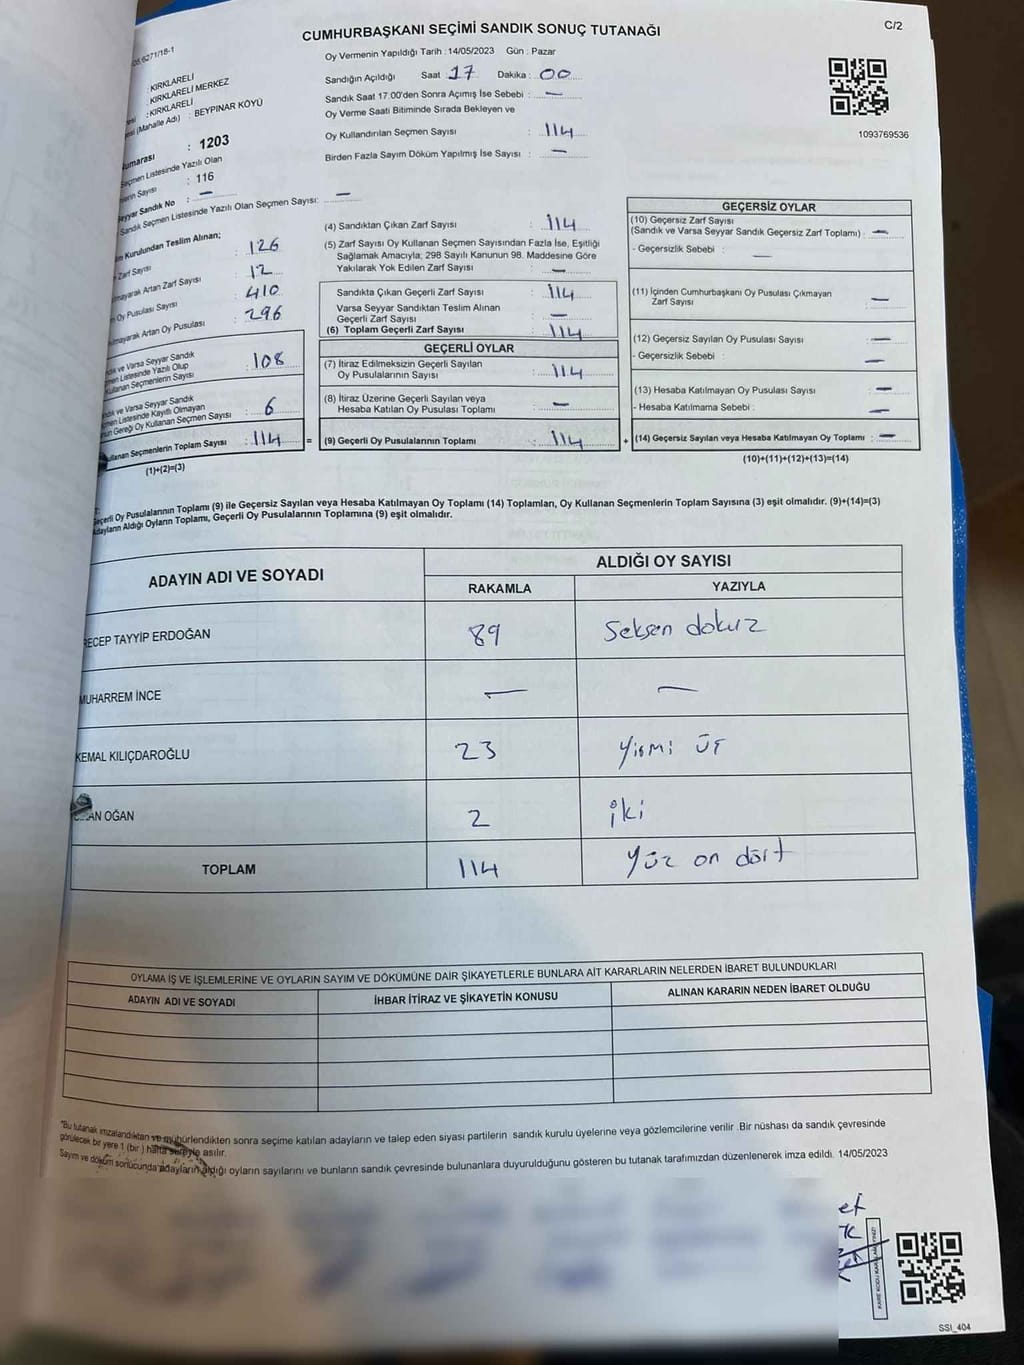 CUMHURBAŞKANI SEÇİMİ SANDIK SONUÇ TUTANAĞI
C/2
Oy Vermenin Yapıldığı Tarih : 14/05/2023 Gün : Pazar
Sandığın Açıldığı Saat : 17 Dakika : 00
Sandık Saat 17:00'den Sonra Açımış İse Sebebi : —
Oy Verme Saati Bitiminde Sırada Bekleyen ve
Oy Kullandırılan Seçmen Sayısı : 114
Birden Fazla Sayım Döküm Yapılmış İse Sayısı : —
1093769536
6271/18-1
: KIRKLARELİ
: KIRKLARELİ MERKEZ
: KIRKLARELİ
(Mahalle Adı) : BEYPINAR KÖYÜ
: 1203
Seçmen Listesinde Yazılı Olan
Sayısı : 116
Seyyar Sandık No : —
Sandık Seçmen Listesinde Yazılı Olan Seçmen Sayısı: —
Kurulundan Teslim Alınan;
Zarf Sayısı : 126
Artan Zarf Sayısı : 12
Oy Pusulası Sayısı : 410
Artan Oy Pusulası : 296
ve Varsa Seyyar Sandık
Listesinde Yazılı Olup
Seçmenlerin Sayısı : 108
ve Varsa Seyyar Sandık
Listesinde Kayıtlı Olmayan
Gereği Oy Kullanan Seçmen Sayısı : 6
Seçmenlerin Toplam Sayısı : 114 =
(1)+(2)=(3)
(4) Sandıktan Çıkan Zarf Sayısı : 114
(5) Zarf Sayısı Oy Kullanan Seçmen Sayısından Fazla İse, Eşitliği
Sağlamak Amacıyla; 298 Sayılı Kanunun 98. Maddesine Göre
Yakılarak Yok Edilen Zarf Sayısı : —
Sandıkta Çıkan Geçerli Zarf Sayısı : 114
Varsa Seyyar Sandıktan Teslim Alınan
Geçerli Zarf Sayısı : —
(6) Toplam Geçerli Zarf Sayısı : 114
GEÇERLİ OYLAR
(7) İtiraz Edilmeksizin Geçerli Sayılan
Oy Pusulalarının Sayısı : 114
(8) İtiraz Üzerine Geçerli Sayılan veya
Hesaba Katılan Oy Pusulası Toplamı : —
(9) Geçerli Oy Pusulalarının Toplamı : 114 +
GEÇERSİZ OYLAR
(10) Geçersiz Zarf Sayısı
(Sandık ve Varsa Seyyar Sandık Geçersiz Zarf Toplamı) : —
- Geçersizlik Sebebi : —
(11) İçinden Cumhurbaşkanı Oy Pusulası Çıkmayan
Zarf Sayısı : —
(12) Geçersiz Sayılan Oy Pusulası Sayısı : —
- Geçersizlik Sebebi : —
(13) Hesaba Katılmayan Oy Pusulası Sayısı : —
- Hesaba Katılmama Sebebi : —
(14) Geçersiz Sayılan veya Hesaba Katılmayan Oy Toplamı : —
(10)+(11)+(12)+(13)=(14)
Geçerli Oy Pusulalarının Toplamı (9) ile Geçersiz Sayılan veya Hesaba Katılmayan Oy Toplamı (14) Toplamları, Oy Kullanan Seçmenlerin Toplam Sayısına (3) eşit olmalıdır. (9)+(14)=(3)
Adayların Aldığı Oyların Toplamı, Geçerli Oy Pusulalarının Toplamına (9) eşit olmalıdır.
ADAYIN ADI VE SOYADI
ALDIĞI OY SAYISI
RAKAMLA YAZIYLA
RECEP TAYYİP ERDOĞAN 89 Seksen dokuz
MUHARREM İNCE — —
KEMAL KILIÇDAROĞLU 23 Yirmi üç
OĞAN 2 iki
TOPLAM 114 Yüz on dört
OYLAMA İŞ VE İŞLEMLERİNE VE OYLARIN SAYIM VE DÖKÜMÜNE DAİR ŞİKAYETLERLE BUNLARA AİT KARARLARIN NELERDEN İBARET BULUNDUKLARI
ADAYIN ADI VE SOYADI İHBAR İTİRAZ VE ŞİKAYETİN KONUSU ALINAN KARARIN NEDEN İBARET OLDUĞU
"Bu tutanak imzalandıktan ve mühürlendikten sonra seçime katılan adayların ve talep eden siyasi partilerin sandık kurulu üyelerine veya gözlemcilerine verilir. Bir nüshası da sandık çevresinde
görülecek bir yere 1 (bir) hafta süreyle asılır.
Sayım ve döküm sonucunda adayların aldığı oyların sayılarını ve bunların sandık çevresinde bulunanlara duyurulduğunu gösteren bu tutanak tarafımızdan düzenlenerek imza edildi. 14/05/2023
SSI_404